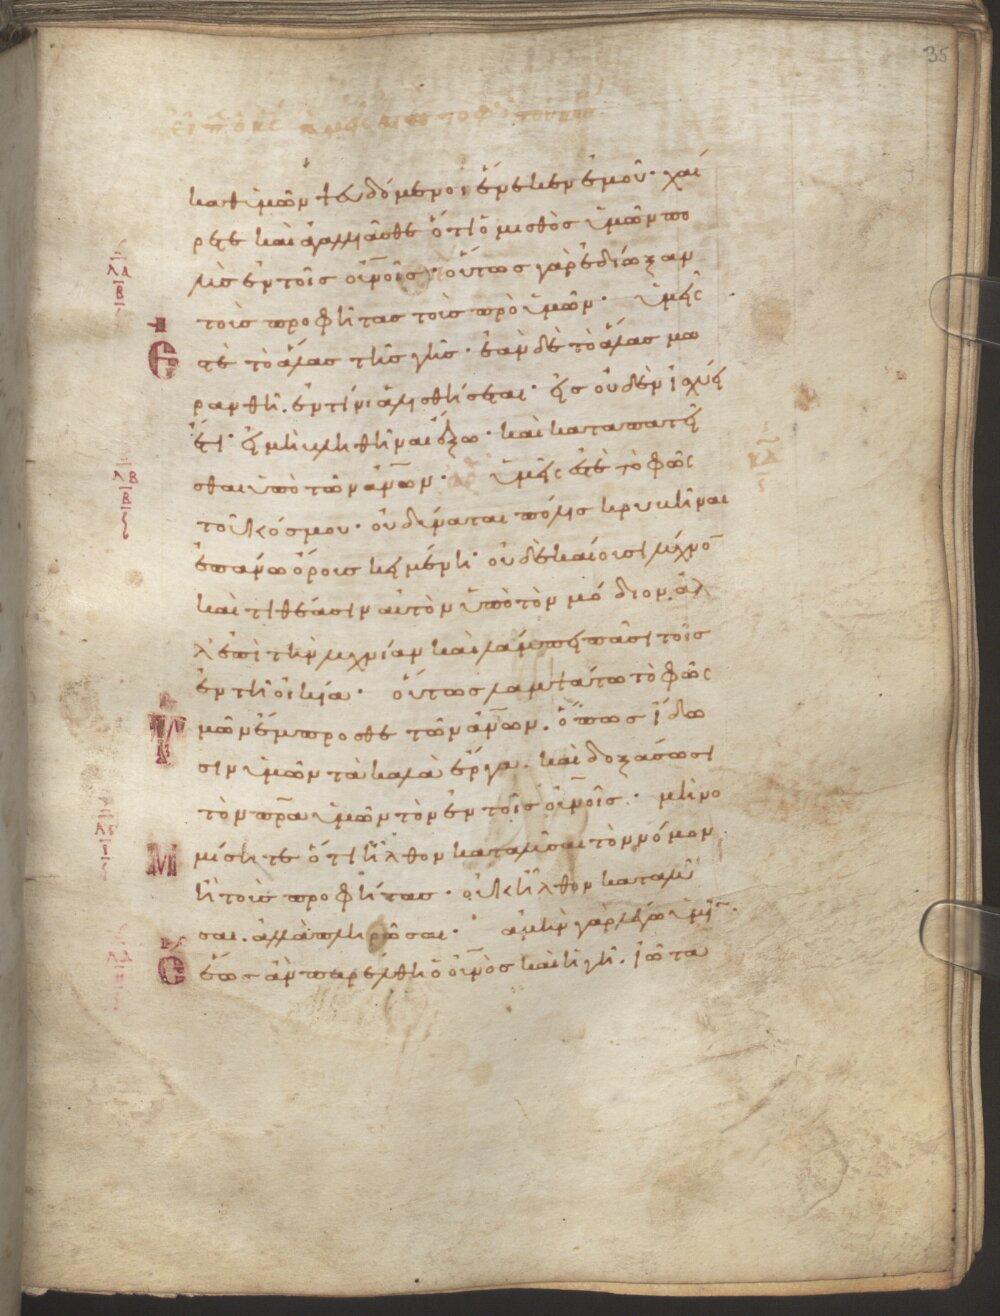 35
καθ ὑμῶν ψευδόμενοι ἕνεκεν ἐμοῦ· χαί
ρετε καὶ ἀγαλλιᾶσθε ὅτι ὁ μισθὸσ ὑμῶν πο
λὺσ ἐν τοῖσ οὐ̅νοῖσ· οὕτωσ γὰρ ἐδίωξαν
τοὺσ προφήτασ τοὺσ πρὸ ὑμῶν· ὑμεῖσ
Ε στὲ τὸ ἅλασ τῆσ γῆσ· ἐὰν δὲ τὸ ἅλασ μω
ρανθῆ. ἐν τίνι ἁλισθήσεται· εἰσ οὐδὲν ἰσχύει
ἔτι· εἰ μὴ βληθῆναι ἔξω· καὶ καταπατεῖ
σθαι ὑπὸ τῶν ἀν̅ων· ὑμεῖσ ἐστὲ τὸ φῶσ
τοῦ κόσμου· οὐ δύναται πόλισ κρυβῆναι
ἐπάνω ὄρουσ κειμένη· οὐδὲ καίουσι λύχνο̅
καὶ τιθέασιν αὐτὸν ὑπὸ τὸν μόδιον. ἀλ
λ ἐπὶ τὴν λυχνίαν καὶ λάμπει πᾶσι τοῖσ
ἐν τῆ οἰκία· οὕτωσ λαμψάτω τὸ φῶσ
Υ μῶν ἔμπροσθε τῶν ἀν̅ων. ὅπωσ ἴδω
σιν ὑμῶν τὰ καλὰ ἔργα. καὶ δοξάσωσι
τὸν πρ̅α ὑμῶν τὸν ἐν τοῖσ οὐ̅νοῖσ· μὴ νο
Μ μίσητε ὅτι ἦλθον καταλῦσαι τὸν νόμον
ἢ τοὺσ προφήτασ· οὐκ ἦλθον καταλῦ
σαι. ἀλλὰ πληρῶσαι· ἀμὴν γὰρ λέγω ὑμῖ̅·
Ε ἕωσ ἂν παρέλθη ὁ οὐ̅νὸσ καὶ ἡ γῆ. ἰῶτα